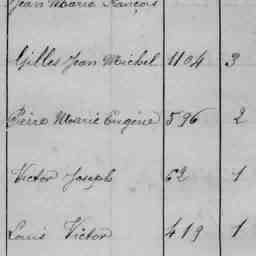 Jean Marie François
Gilles Jean Michel 1104 3
Pierre Marie Eugène 596 2
Victor Joseph 62 1
Louis Victor 419 1